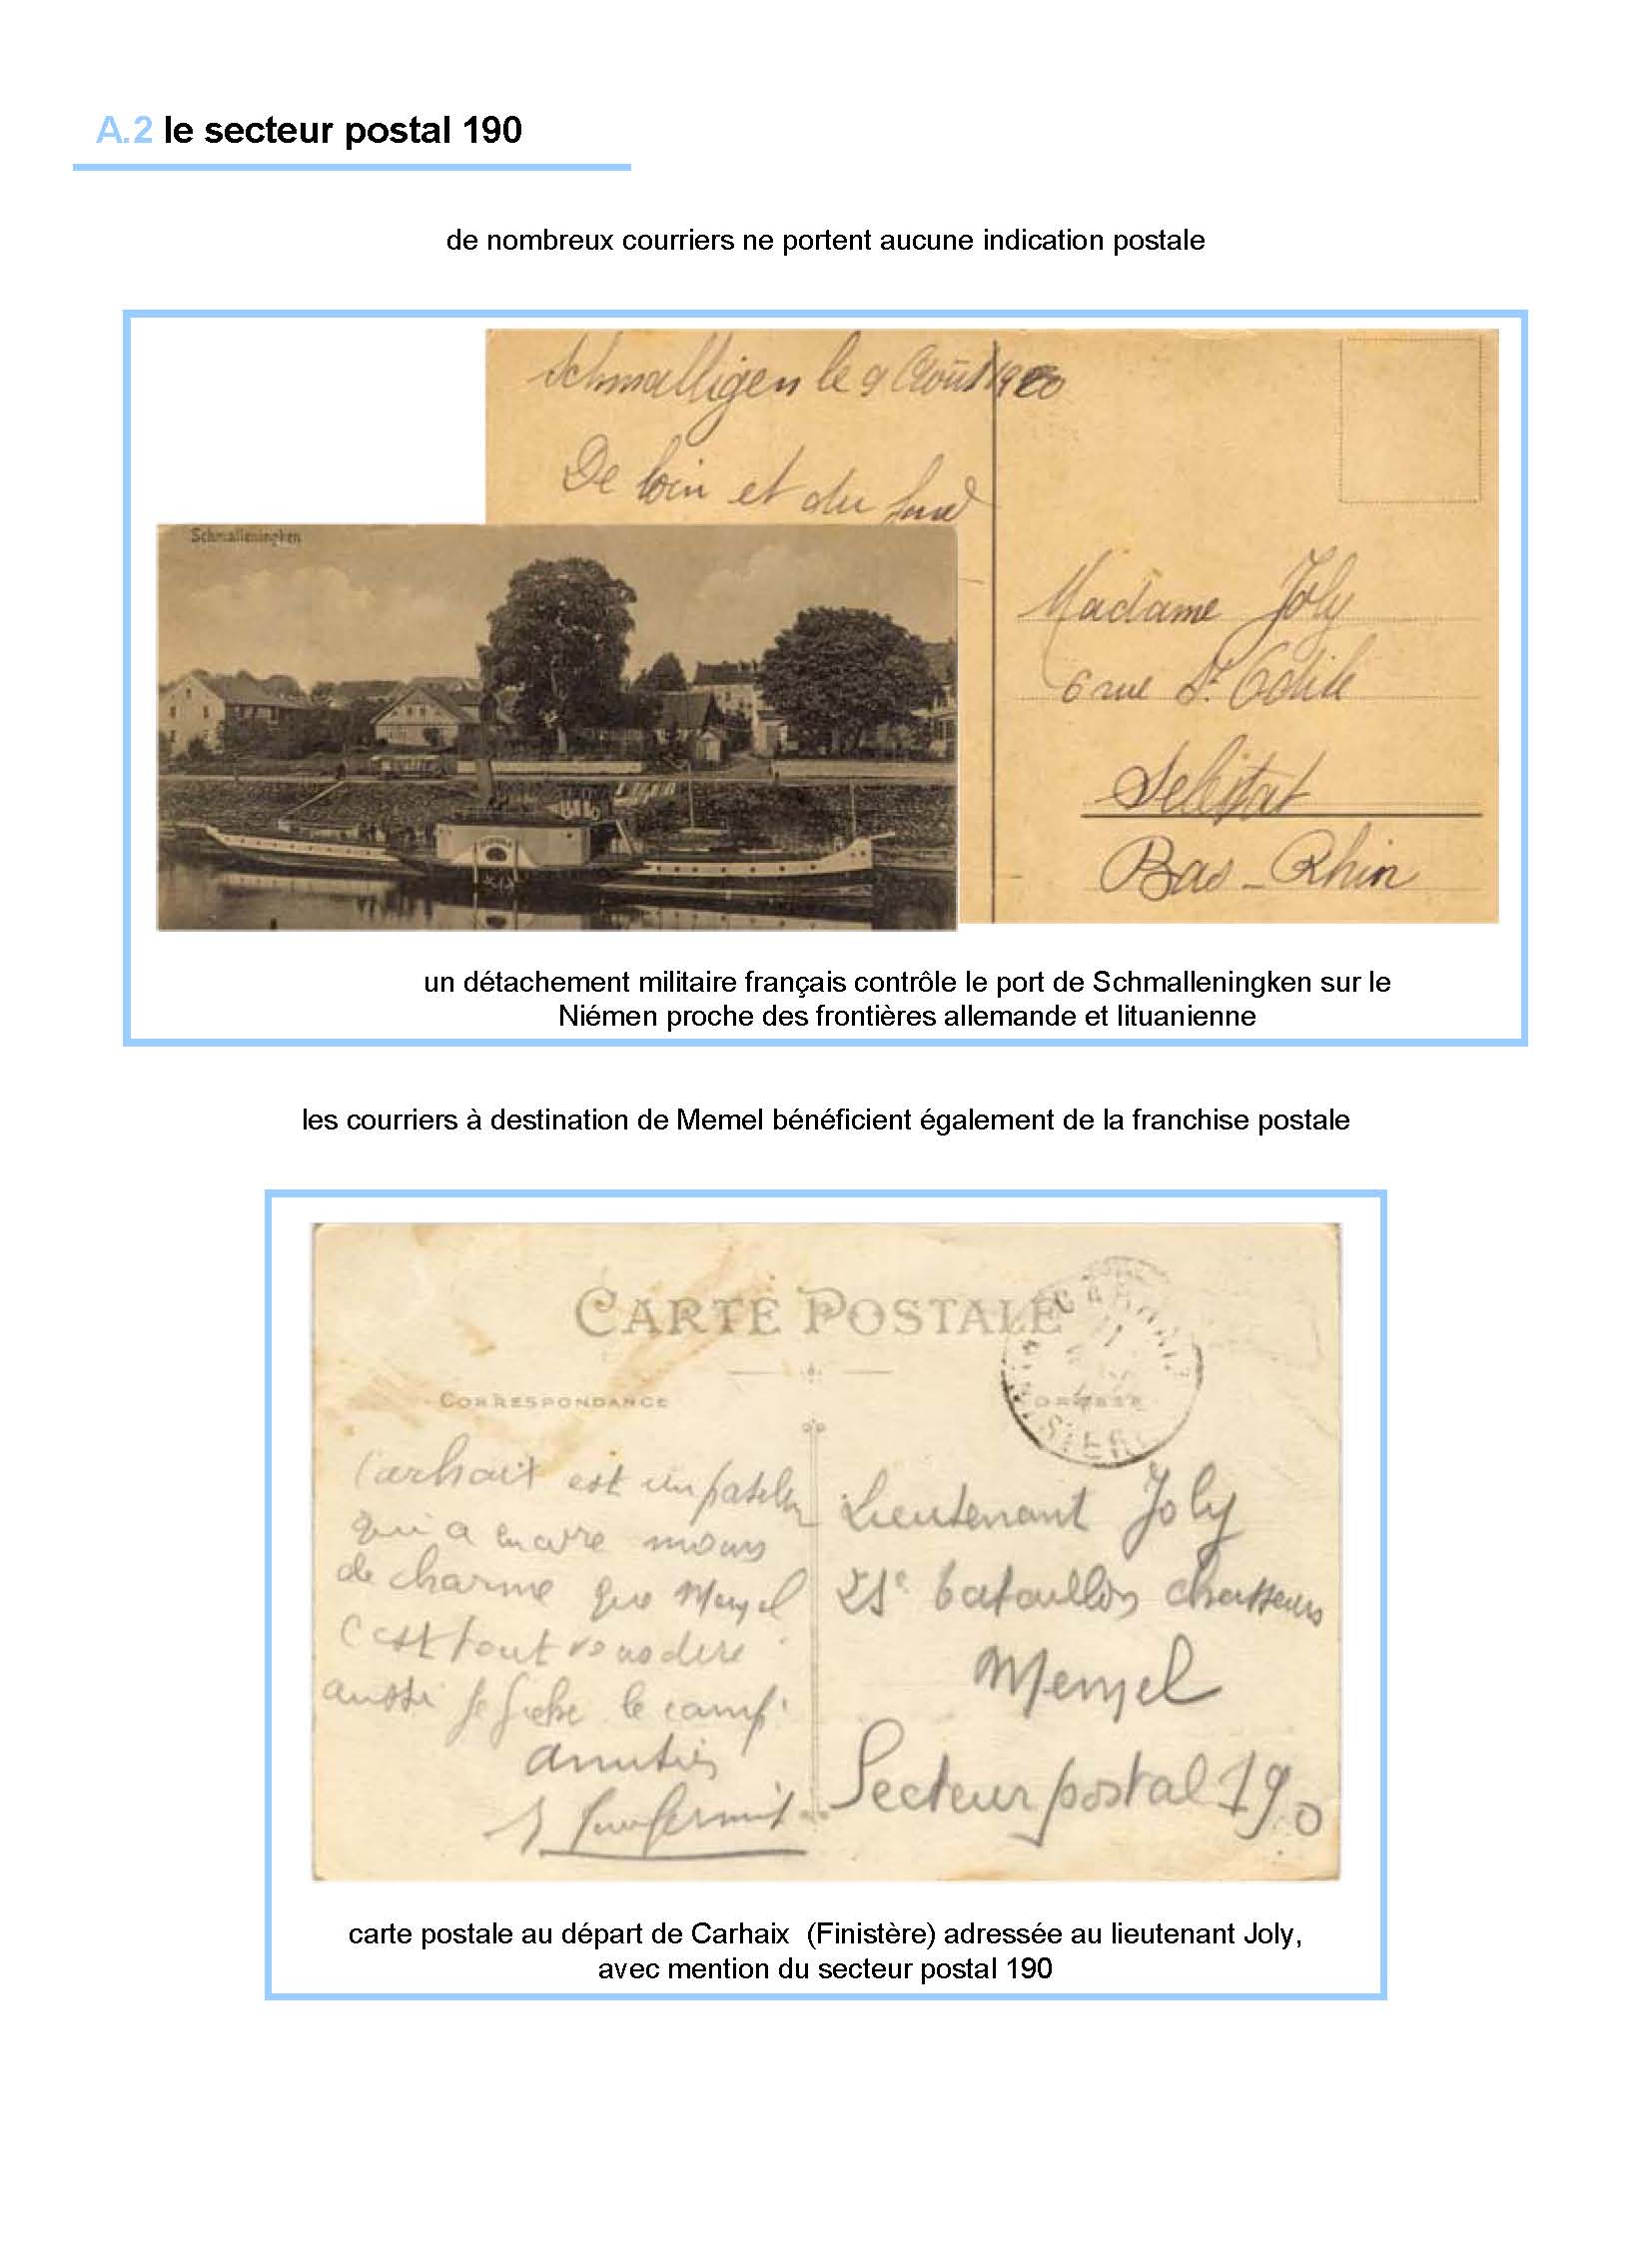 A.2 le secteur postal 190
de nombreux courriers ne portent aucune indication postale
Schmalligen le 9 Août 1920
De loin et du fond
Schmalleningken
Madame Joly
6 rue St Odile
Selestat
Bas-Rhin
un détachement militaire français contrôle le port de Schmalleningken sur le
Niémen proche des frontières allemande et lituanienne
les courriers à destination de Memel bénéficient également de la franchise postale
CARTE POSTALE
CARHAIX
FINISTERE
CORRESPONDANCE
ADRESSE
Carhaix est un patelin
qui a encore moins
de charme que Memel
C'est tout vous dire
aussi je fiche le camp
amitiés
Lieutenant Joly
21e bataillon chasseurs
Memel
Secteur postal 190
carte postale au départ de Carhaix (Finistère) adressée au lieutenant Joly,
avec mention du secteur postal 190